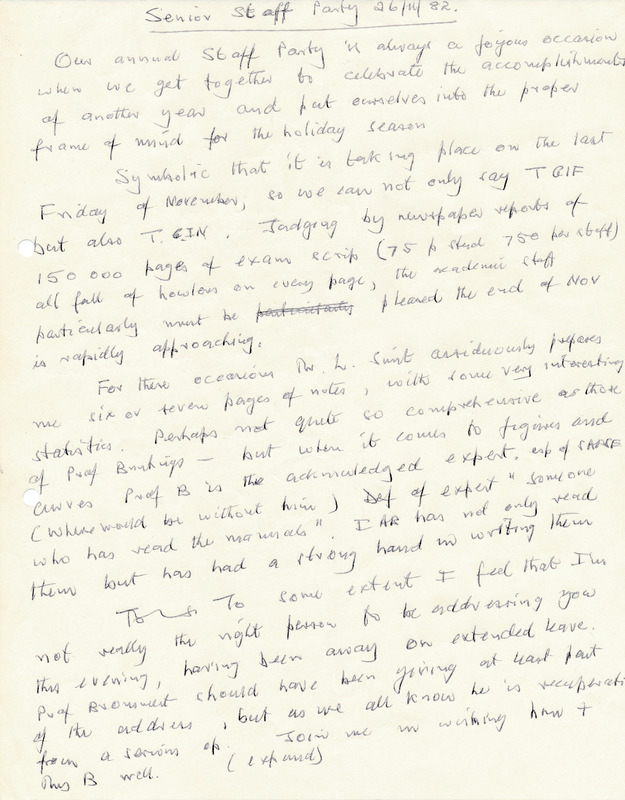 Senior Staff Party 26/11/82.
Our annual Staff Party is always a joyous occasion
when we get together to celebrate the accomplishments
of another year and put ourselves into the proper
frame of mind for the holiday season
Symbolic that it is taking place on the last
Friday of November, so we can not only say TGIF
but also T.GIN. Judging by newspaper reports of
150 000 pages of exam scrip (75 p stud 750 per staff)
all full of howlers on every page, the academic staff
particularly must be particularly pleased the end of Nov
is rapidly approaching.
For these occasions Mr. L. Smit assiduously prepares
me six or seven pages of notes, with some very interesting
statistics. Perhaps not quite so comprehensive as those
of Prof - but when it comes to figures and
curves Prof B is the acknowledged expert. esp of
(Where would be without him) Def of expert "someone
who has read the manuals". I AR has not only read
them but has had a strong hand in writing them
To some extent I feel that I'm
not really the right person to be addressing you
this evening, having been away on extended leave.
Prof should have been giving at least part
of the address, but as we all know he is recuperati
from a serious op. Join me in wishing him +
Mrs B well. (expand)